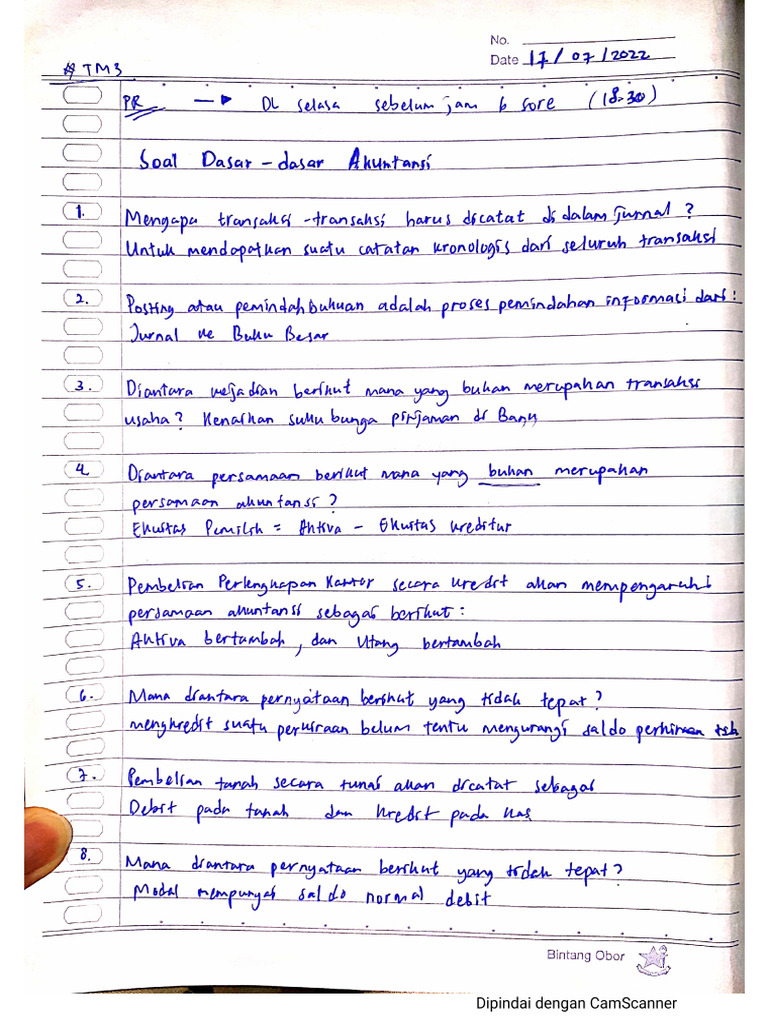 No.
Date 17/07/2022
# TM3
PR → DL selasa sebelum jam 6 sore (18.30)
Soal Dasar-dasar Akuntansi
1. Mengapa transaksi-transaksi harus dicatat di dalam jurnal?
Untuk mendapatkan suatu catatan kronologis dari seluruh transaksi
2. Posting atau pemindahbukuan adalah proses pemindahan informasi dari:
Jurnal ke Buku Besar
3. Diantara kejadian berikut mana yang bukan merupakan transaksi
usaha? Kenaikan suku bunga pinjaman di Bank
4. Diantara persamaan berikut mana yang bukan merupakan
persamaan akuntansi?
Ekuitas Pemilik = Aktiva - Ekuitas kreditur
5. Pembelian Perlengkapan Kantor secara kredit akan mempengaruhi
persamaan akuntansi sebagai berikut:
Aktiva bertambah, dan Utang bertambah
6. Mana diantara pernyataan berikut yang tidak tepat?
mengkredit suatu perkiraan belum tentu mengurangi saldo perkiraan tsb
7. Pembelian tanah secara tunai akan dicatat sebagai
Debit pada tanah dan kredit pada kas
8. Mana diantara pernyataan berikut yang tidak tepat?
Modal mempunyai saldo normal debit
Bintang Obor
Dipindai dengan CamScanner